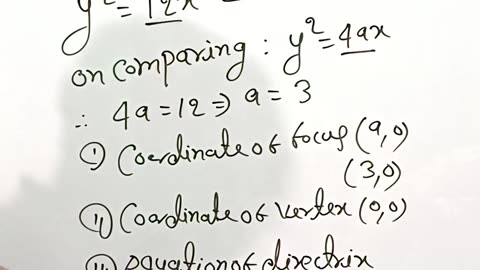 y² = 12x
on comparing : y² = 4ax
∴ 4a = 12 ⇒ a = 3
i) Coordinate of focus (a,0)
(3,0)
ii) Coordinate of vertex (0,0)
iii) equation of directrix